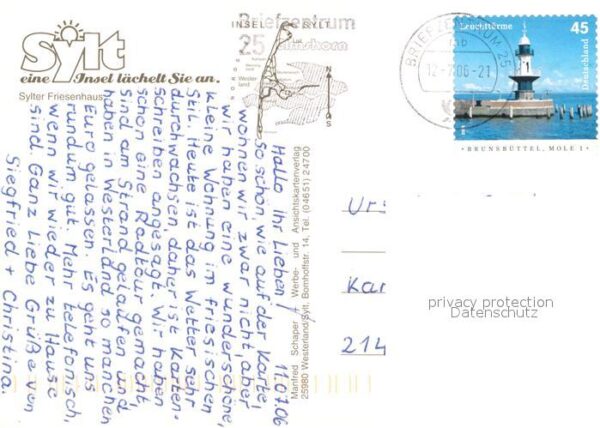 Sylt
eine Insel lächelt Sie an.
Sylter Friesenhaus
INSEL SYLT
Briefzentrum
25
Elmshorn
NORDSEE
List
Wester
land
BRIEFZENTRUM 25
12.-7.06-21
Leuchttürme 45
Deutschland
· BRUNSBÜTTEL, MOLE 1 ·
11.07.06
Hallo Ihr Lieben!
so schön, wie auf der Karte,
wohnen wir zwar nicht, aber
wir haben eine wunderschöne,
kleine Wohnung im friesischen
Stil. Heute ist das Wetter sehr
durchwachsen, daher ist Karten-
schreiben angesagt. Wir haben
schon eine Radtour gemacht,
sind am Strand gelaufen und
haben in Westerland so manchen
Euro gelassen. Es geht uns
rundum gut. Mehr telefonisch,
wenn wir wieder zu Hause
sind. Ganz liebe Grüße von
Siegfried + Christina.
Manfred Schaper · Werbe- und Ansichtskartenverlag
25980 Westerland/Sylt, Bomhoffstr. 14, Tel. (04651) 24700
Ur
Kar
214
privacy protection
Datenschutz